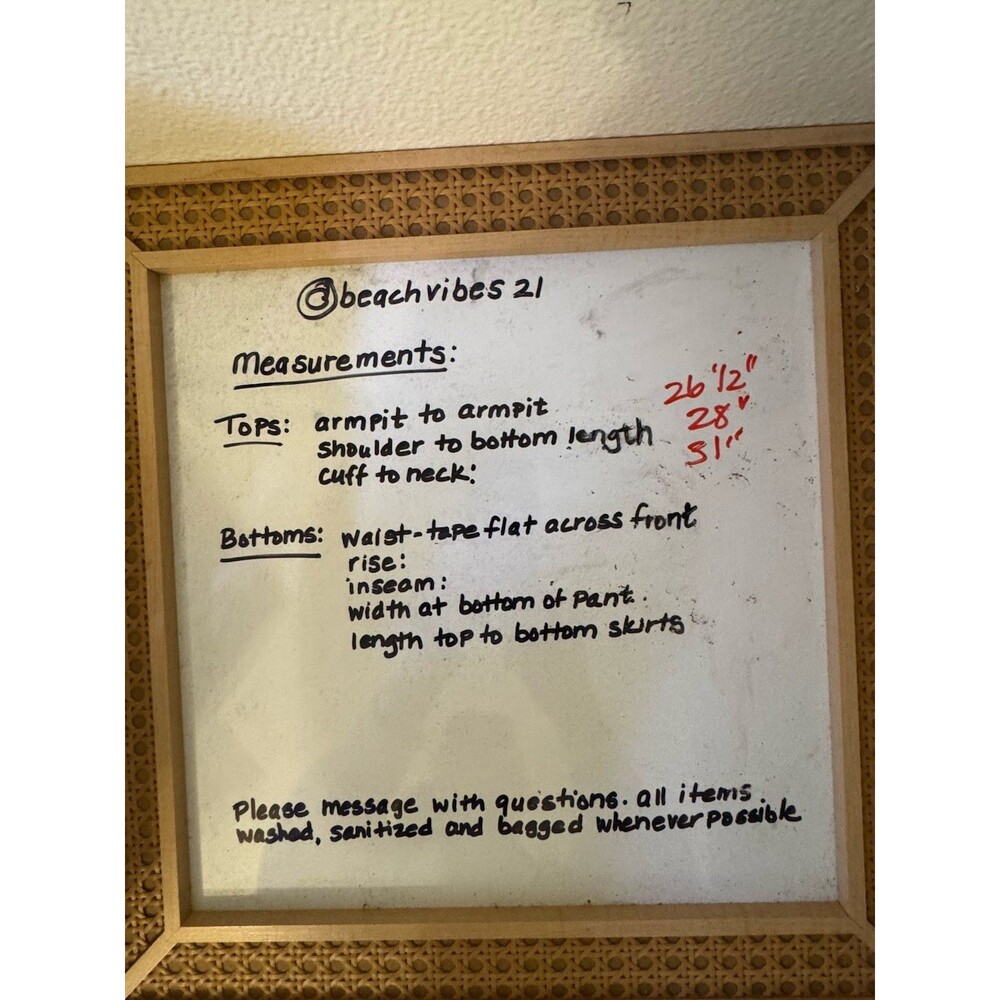 @beachvibes 21
Measurements:
Tops: armpit to armpit 26 1/2"
shoulder to bottom length 28"
cuff to neck: 31"
Bottoms: waist-tape flat across front
rise:
inseam:
width at bottom of pant.
length top to bottom skirts
Please message with questions. all items
washed, sanitized and bagged whenever possible